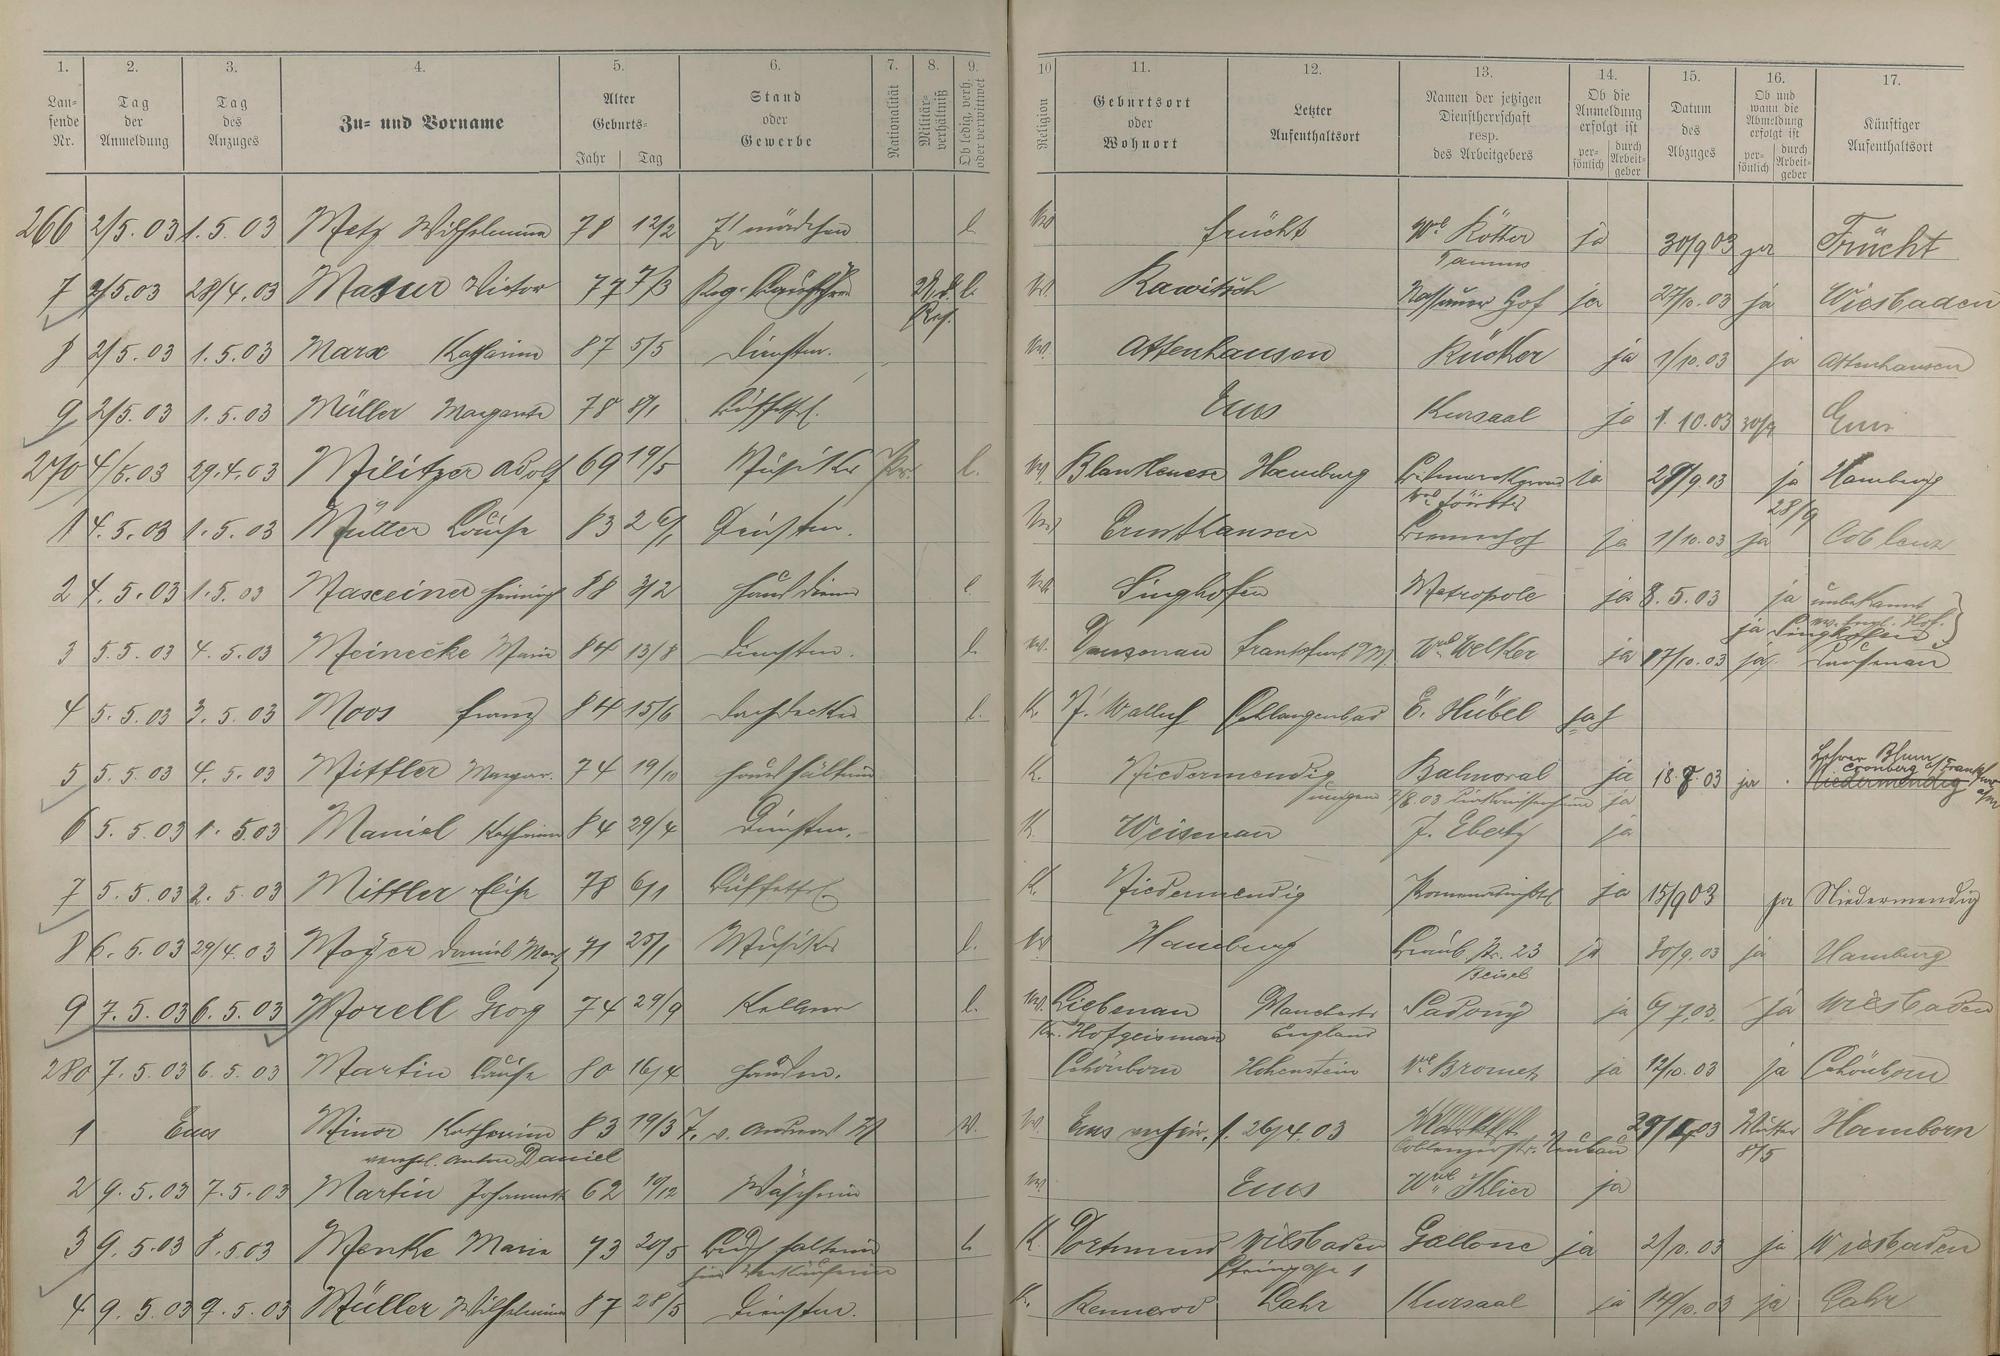 1. 2. 3. 4. 5. 6. 7. 8. 9. 10 11. 12. 13. 14. 15. 16. 17.
Lau-
fende
Nr.
Tag
der
Anmeldung
Tag
des
Anzuges
Zu- und Vorname
Alter
Geburts-
Jahr Tag
Stand
oder
Gewerbe
Nationalität
Militär-
verhältniß
Ob ledig, verh.
oder verwittwet
Religion
Geburtsort
oder
Wohnort
Letzter
Aufenthaltsort
Namen der jetzigen
Dienstherrschaft
resp.
des Arbeitgebers
Ob die
Anmeldung
erfolgt ist
per-
sönlich
durch
Arbeit-
geber
Datum
des
Abzuges
Ob und
wann die
Abmeldung
erfolgt ist
per-
sönlich
durch
Arbeit-
geber
Künftiger
Aufenthaltsort
266 2/5. 03 1. 5. 03 Metz Wilhelmine 78 12/2 mädchen l. Frücht Wwe Kötter ja 30/9 03 ja Frücht
Taunus
7 2/5.03 28/4.03 Masur Victor 77 7/3 l. Rawitsch Nassauer Hof ja 27/10.03 ja Wiesbaden
Res.
8 2/5.03 1.5.03 Marx Katharina 87 5/5 Dienstm. Attenhausen Rücker ja 1/10.03 ja Attenhausen
9 2/5.03 1.5.03 Müller Margarete 78 8/1 Büffetfrl. Ems Kursaal ja 1.10.03 30/9 Ems
270 4/5.03 29.4.03 Militzer Adolf 69 19/5 Musiker Pr. l. Blankenese Hamburg ja 29/9.03 ja Hamburg
28/9
1 4.5.03 1.5.03 Müller Louise 83 26/1 Dienstm. Ernsthausen ja 1/10.03 ja Coblenz
2 4.5.03 1.5.03 Maxeiner Heinrich 88 3/2 Hausdiener l. Singhofen Metropole ja 8.5.03 ja unbekannt
ja Singhofen
3 5.5.03 4.5.03 Meinecke Marie 84 13/8 Dienstm. l. Frankfurt a/M Wwe Welker ja 17/10.03 ja Dausenau
4 5.5.03 3.5.03 Moos Franz 84 15/6 Dachdecker l. K. N. Walluf Schlangenbad E. Hübel ja
5 5.5.03 4.5.03 Mittler Margar. 74 19/10 Haushälterin K. Niedermendig Balmoral ja 18.8.03 ja Niedermendig
Lehrer Blum
Cronberg a/Frankfurt a/M
6 5.5.03 1.5.03 Maniel Katharina 84 29/4 Dienstm. K. Weisenau J. Eberty ja
7 5.5.03 2.5.03 Mittler Elise 78 6/1 Büffetfrl. K. Niedermendig ja 15/9 03 ja Niedermendig
8 6.5.03 29/4.03 Mayer Daniel 71 25/1 Musiker l. Hamburg Grab. Str. 23 ja 30/9.03 ja Hamburg
Beisel
9 7.5.03 6.5.03 Morell Georg 74 29/9 Kellner l. Liebenau Manchester ja 6/7.03. ja Wiesbaden
Kr. Hofgeismar England
280 7.5.03 6.5.03 Martin Louise 80 16/4 Hausm. Schönborn Hohenstein Wwe Bromet ja 12/10.03 ja Schönborn
1 Ems Minor Katharina 83 19/3 W. Ems 26/4.03 Mutter Hamborn
verehel. Anton Daniel Coblenzerstr. Neubau 8/5
2 9.5.03 7.5.03 Martin 62 10/12 Wäscherin Ems Wwe Klier ja
3 9.5.03 8.5.03 Menke Marie 73 20/5 Buchhalterin l. K. Dortmund Wiesbaden Gallone ja 2/10.03 ja Wiesbaden
Steingasse 1
4 9.5.03 9.5.03 Müller Wilhelmine 87 28/5 Dienstm. K. Rennerod Lahr Kursaal ja 14/10.03 ja Lahr